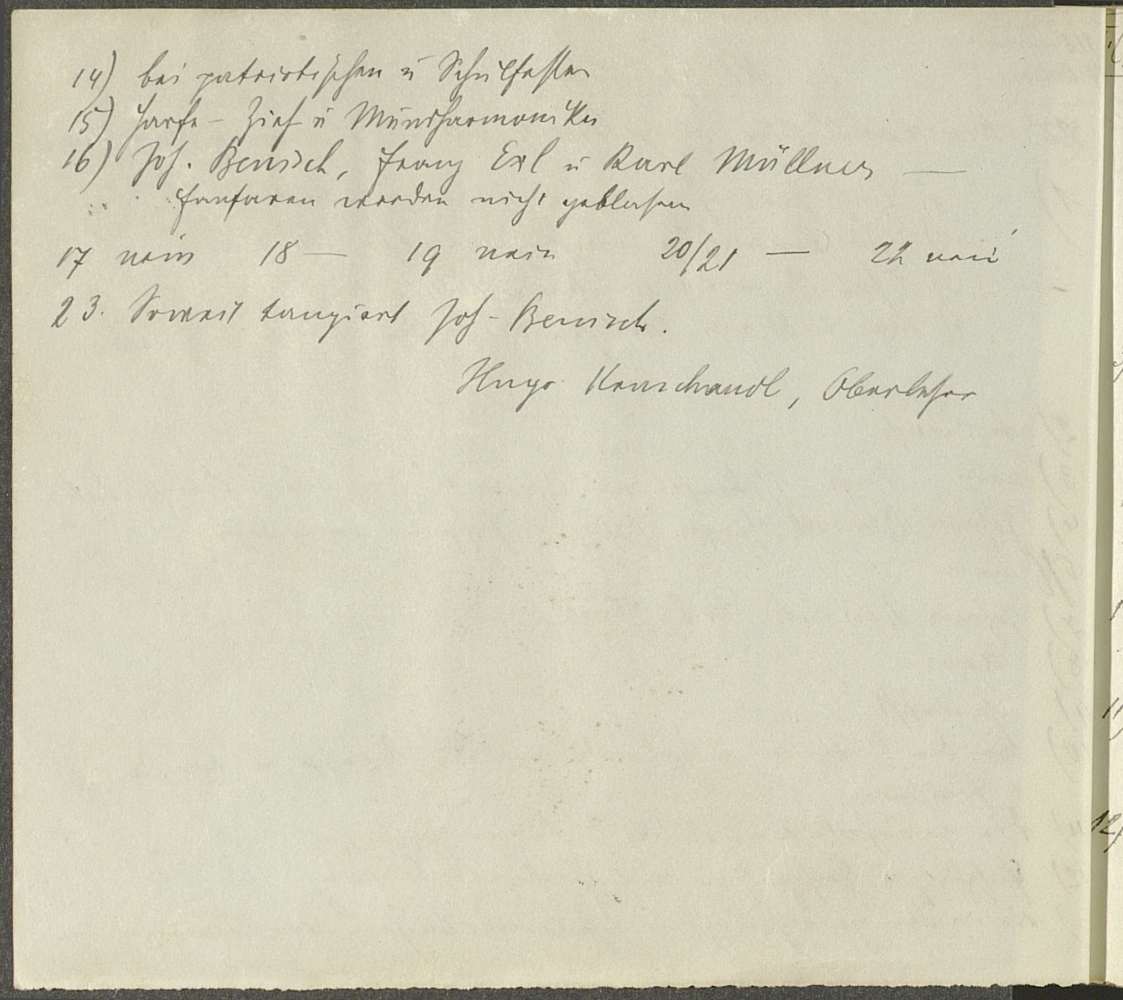 14) bei patriotischen u Schulfesten
15) Harfe - Zieh u Mundharmonika
16) Joh. Benisch, Franz Exl u Karl Müllner —
Fanfaren werden nicht geblasen
17 nein 18 — 19 nein 20/21 — 22 nein
23. Soweit tangiert Joh. Benisch.
Hugo, Oberlehrer
12)